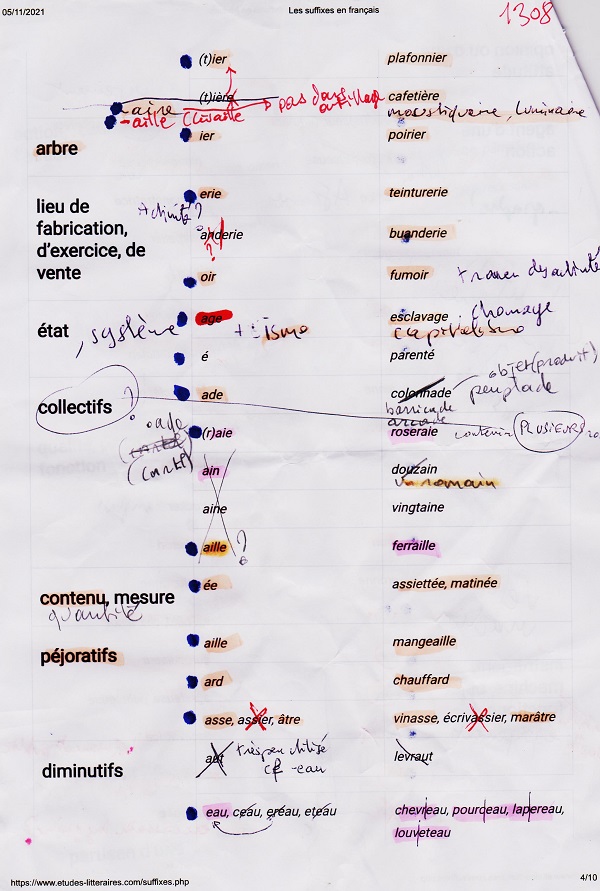 05/11/2021 Les suffixes en français 1308
(t)ier plafonnier
(t)ière cafetière
-aire pas dans moustiquaire, luminaire
-aille (
arbre ier poirier
lieu de fabrication, d'exercice, de vente erie teinturerie
+ activité?
anderie buanderie
?
oir fumoir
état, système age + : isme esclavage chomage
capitalisme
é parenté
collectifs ? ade colonnade objet (produit)
peuplade
barricade
arcade
: ade
(r)aie roseraie contenir PLUSIEURS
ain douzain
un romain
aine vingtaine
aille ? ferraille
contenu, mesure ée assiettée, matinée
quantité
péjoratifs aille mangeaille
ard chauffard
asse, assier, âtre vinasse, écrivassier, marâtre
diminutifs aut très peu utilisé levraut
cf -eau
eau, ceau, ereau, eteau chevreau, pourceau, lapereau,
louveteau
https://www.etudes-litteraires.com/suffixes.php 4/10